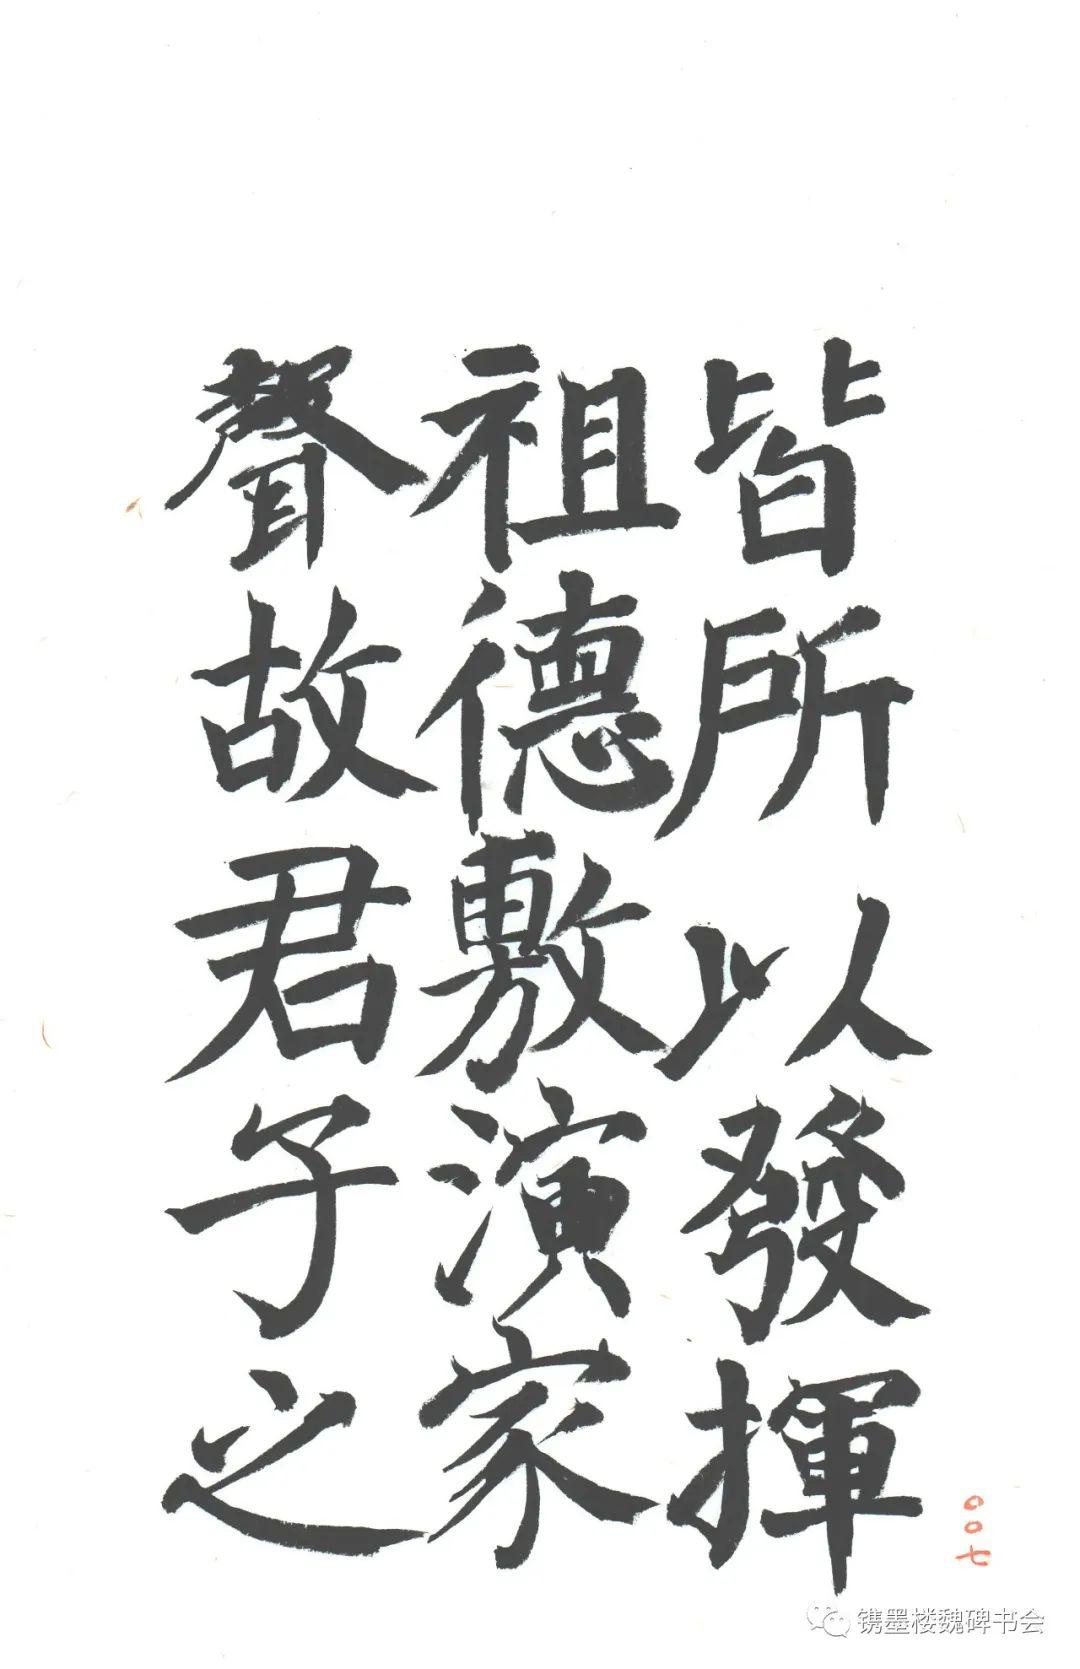 皆所以發揮
祖德敷演家
聲故君子之
〇〇七
镌墨楼魏碑书会